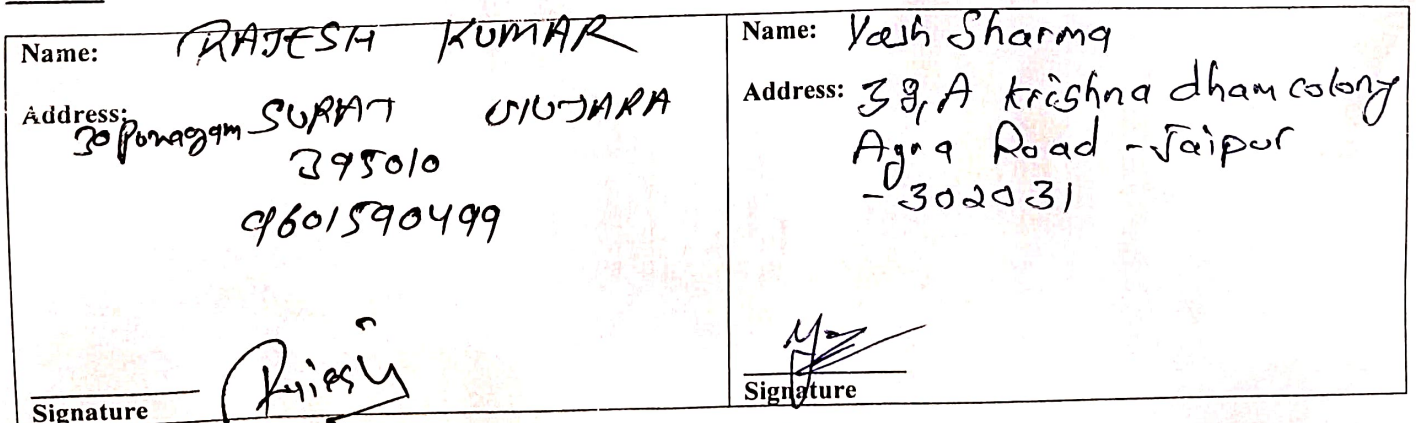 Name: RAJESH KUMAR
Address: 30 Punagam SURAT GUJARA
395010
9601590499
Rajesh
Signature
Name: Yash Sharma
Address: 39, A Krishna dham colony
Agra Road - Jaipur
- 302031
Signature